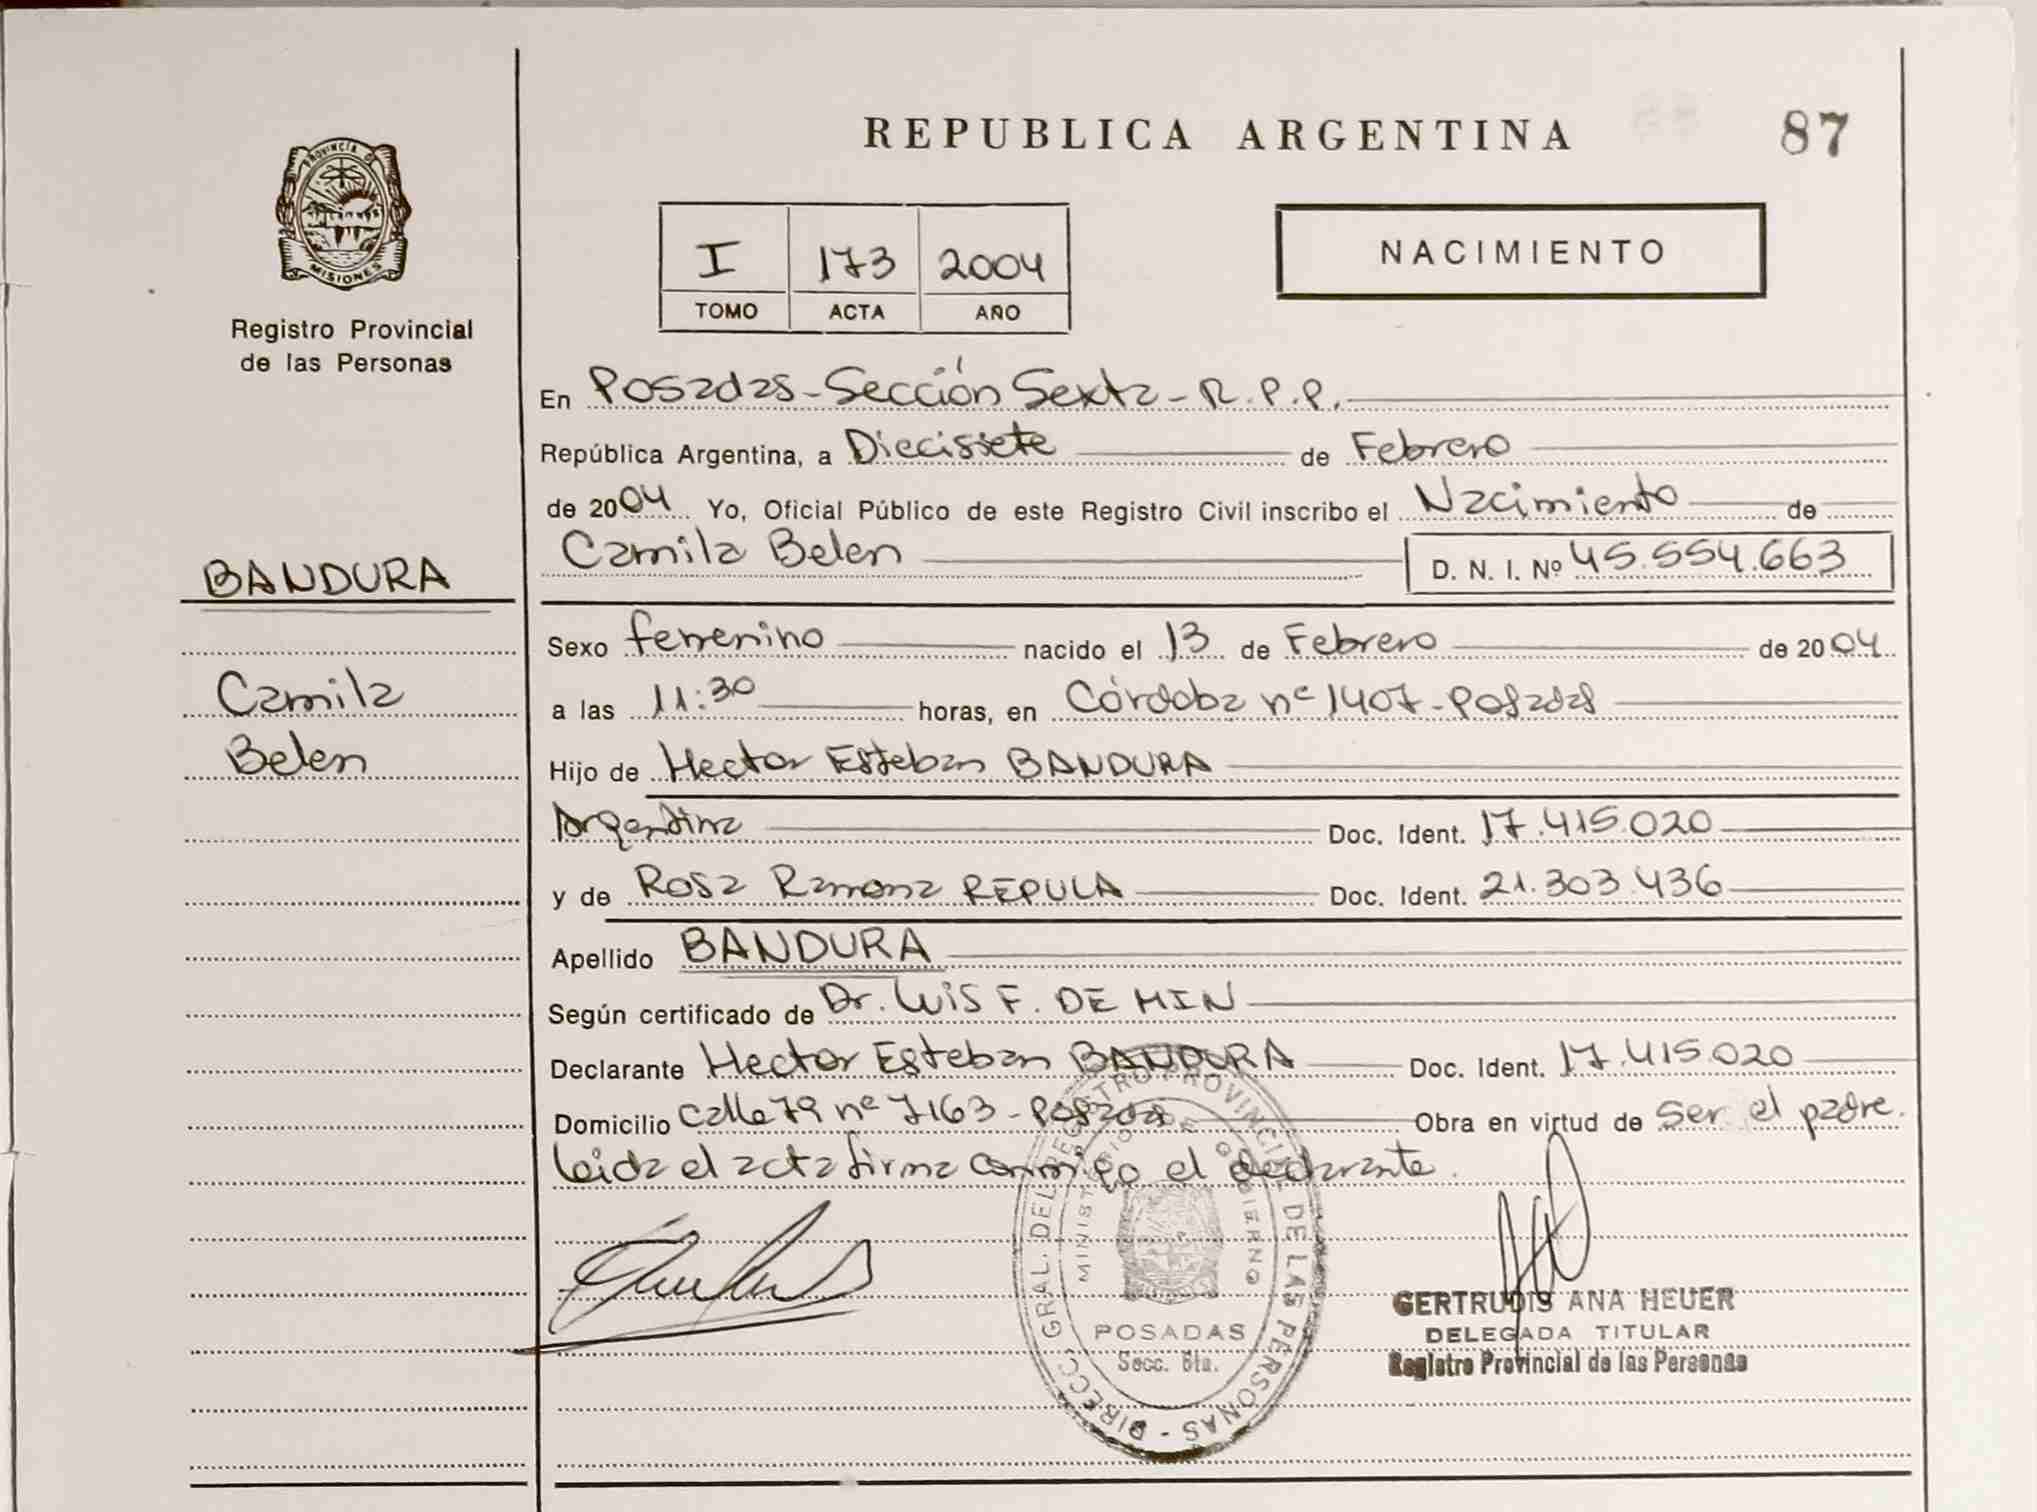 REPUBLICA ARGENTINA
87
PROVINCIA DE
MISIONES
Registro Provincial
de las Personas
I 173 2004
TOMO ACTA AÑO
NACIMIENTO
En Posadas-Sección Sexta-R.P.P.
República Argentina, a Diecisiete de Febrero
de 2004 Yo, Oficial Público de este Registro Civil inscribo el Nacimiento de
Camila Belen D. N. I. Nº 45.554.663
BANDURA
Camila
Belen
Sexo femenino nacido el 13 de Febrero de 2004
a las 11:30 horas, en Córdoba nº 1407-Posadas
Hijo de Hector Esteban BANDURA
Argentina Doc. Ident. 17.415.020
y de Rosa Ramona REPULA Doc. Ident. 21.303.436
Apellido BANDURA
Según certificado de Dr. Luis F. DE MIN
Declarante Hector Esteban BANDURA Doc. Ident. 17.415.020
Domicilio Calle 79 nº 7163-Posadas Obra en virtud de ser el padre.
Leida el acta firma conmigo el declarante.
DIRECC. GRAL. DEL REGISTRO PROVINCIAL DE LAS PERSONAS
MINISTERIO DE GOBIERNO
POSADAS
Secc. 6ta.
GERTRUDIS ANA HEUER
DELEGADA TITULAR
Registro Provincial de las Personas